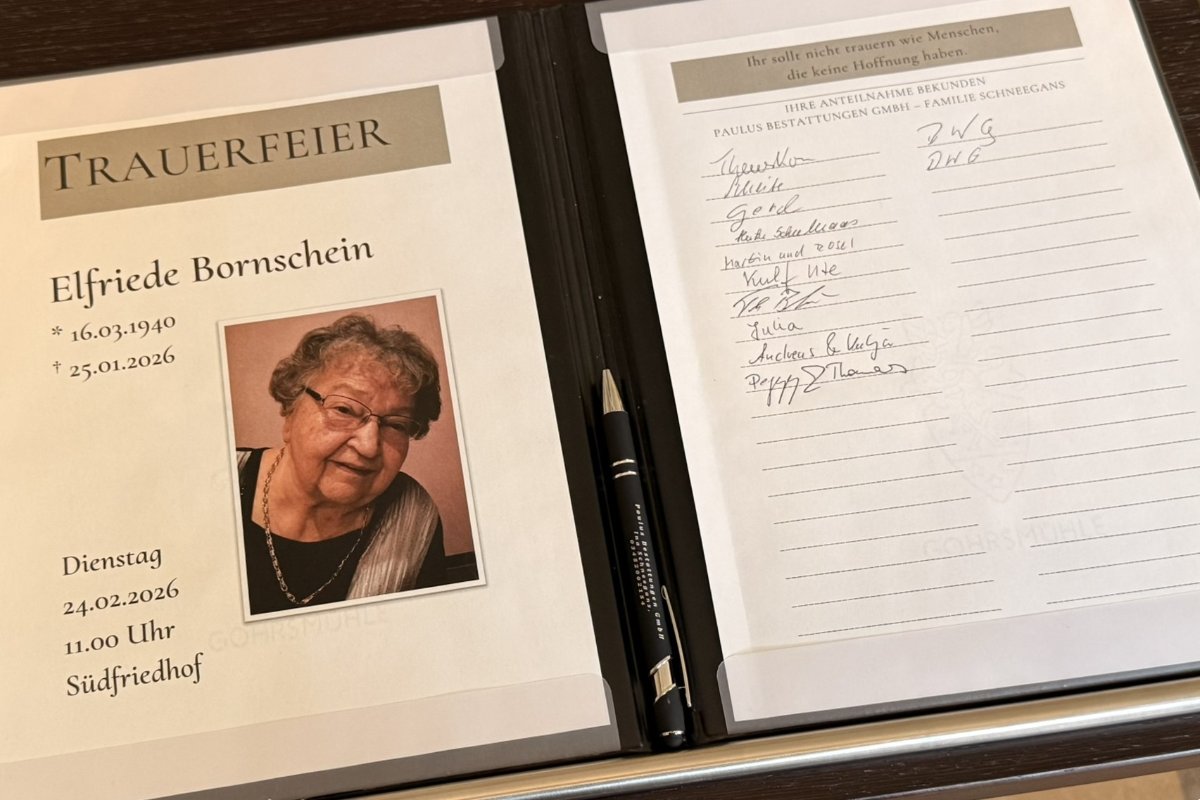 TRAUERFEIER
Elfriede Bornschein
* 16.03.1940
† 25.01.2026
Dienstag
24.02.2026
11.00 Uhr
Südfriedhof
GOHRSMÜHLE
Paulus Bestattungen GmbH
Ihr sollt nicht trauern wie Menschen,
die keine Hoffnung haben.
IHRE ANTEILNAHME BEKUNDEN
PAULUS BESTATTUNGEN GMBH – FAMILIE SCHNEEGANS
Gerd
Martin und Rosel
Ute
Julia
Andreas & Katja
Peggy & Thomas
DWG
DWG
GOHRSMÜHLE